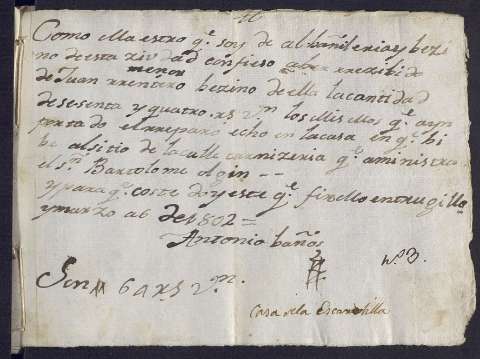 Como el Maestro q.e soy de albañileria y bezi
no de esta ziudad confieso aber rrezibido
de Juan menor rrentero bezino de ella la cantidad
de sesenta y quatro rs vn los Mismos q.e ayn
portado el rreparo echo en la casa en q.e bi
be al sitio de la calle carnizeria q.e aministra
el sr Bartolome olgin - -
y para q.e coste doy este q.e firmo en trugillo
y marzo a 6 de 1802 =
Antonio baños
Son 64 rs vn.
nº 3.
Casa de la Escan